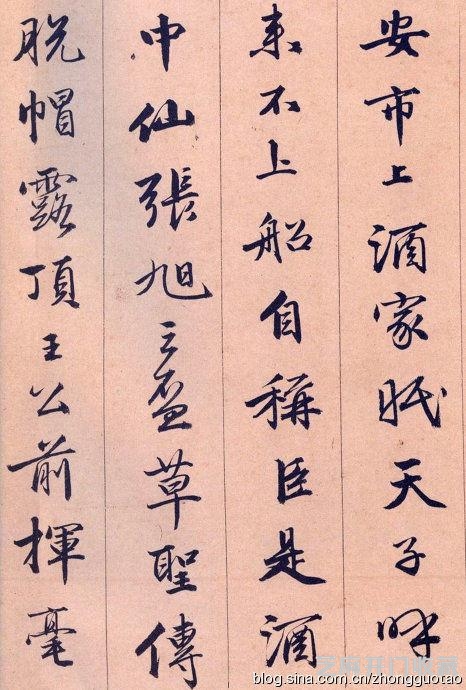 安市上酒家眠天子呼
来不上船自稱臣是酒
中仙張旭三盃草聖傳
脱帽露頂王公前揮毫
blog.sina.com.cn/zhongguotao